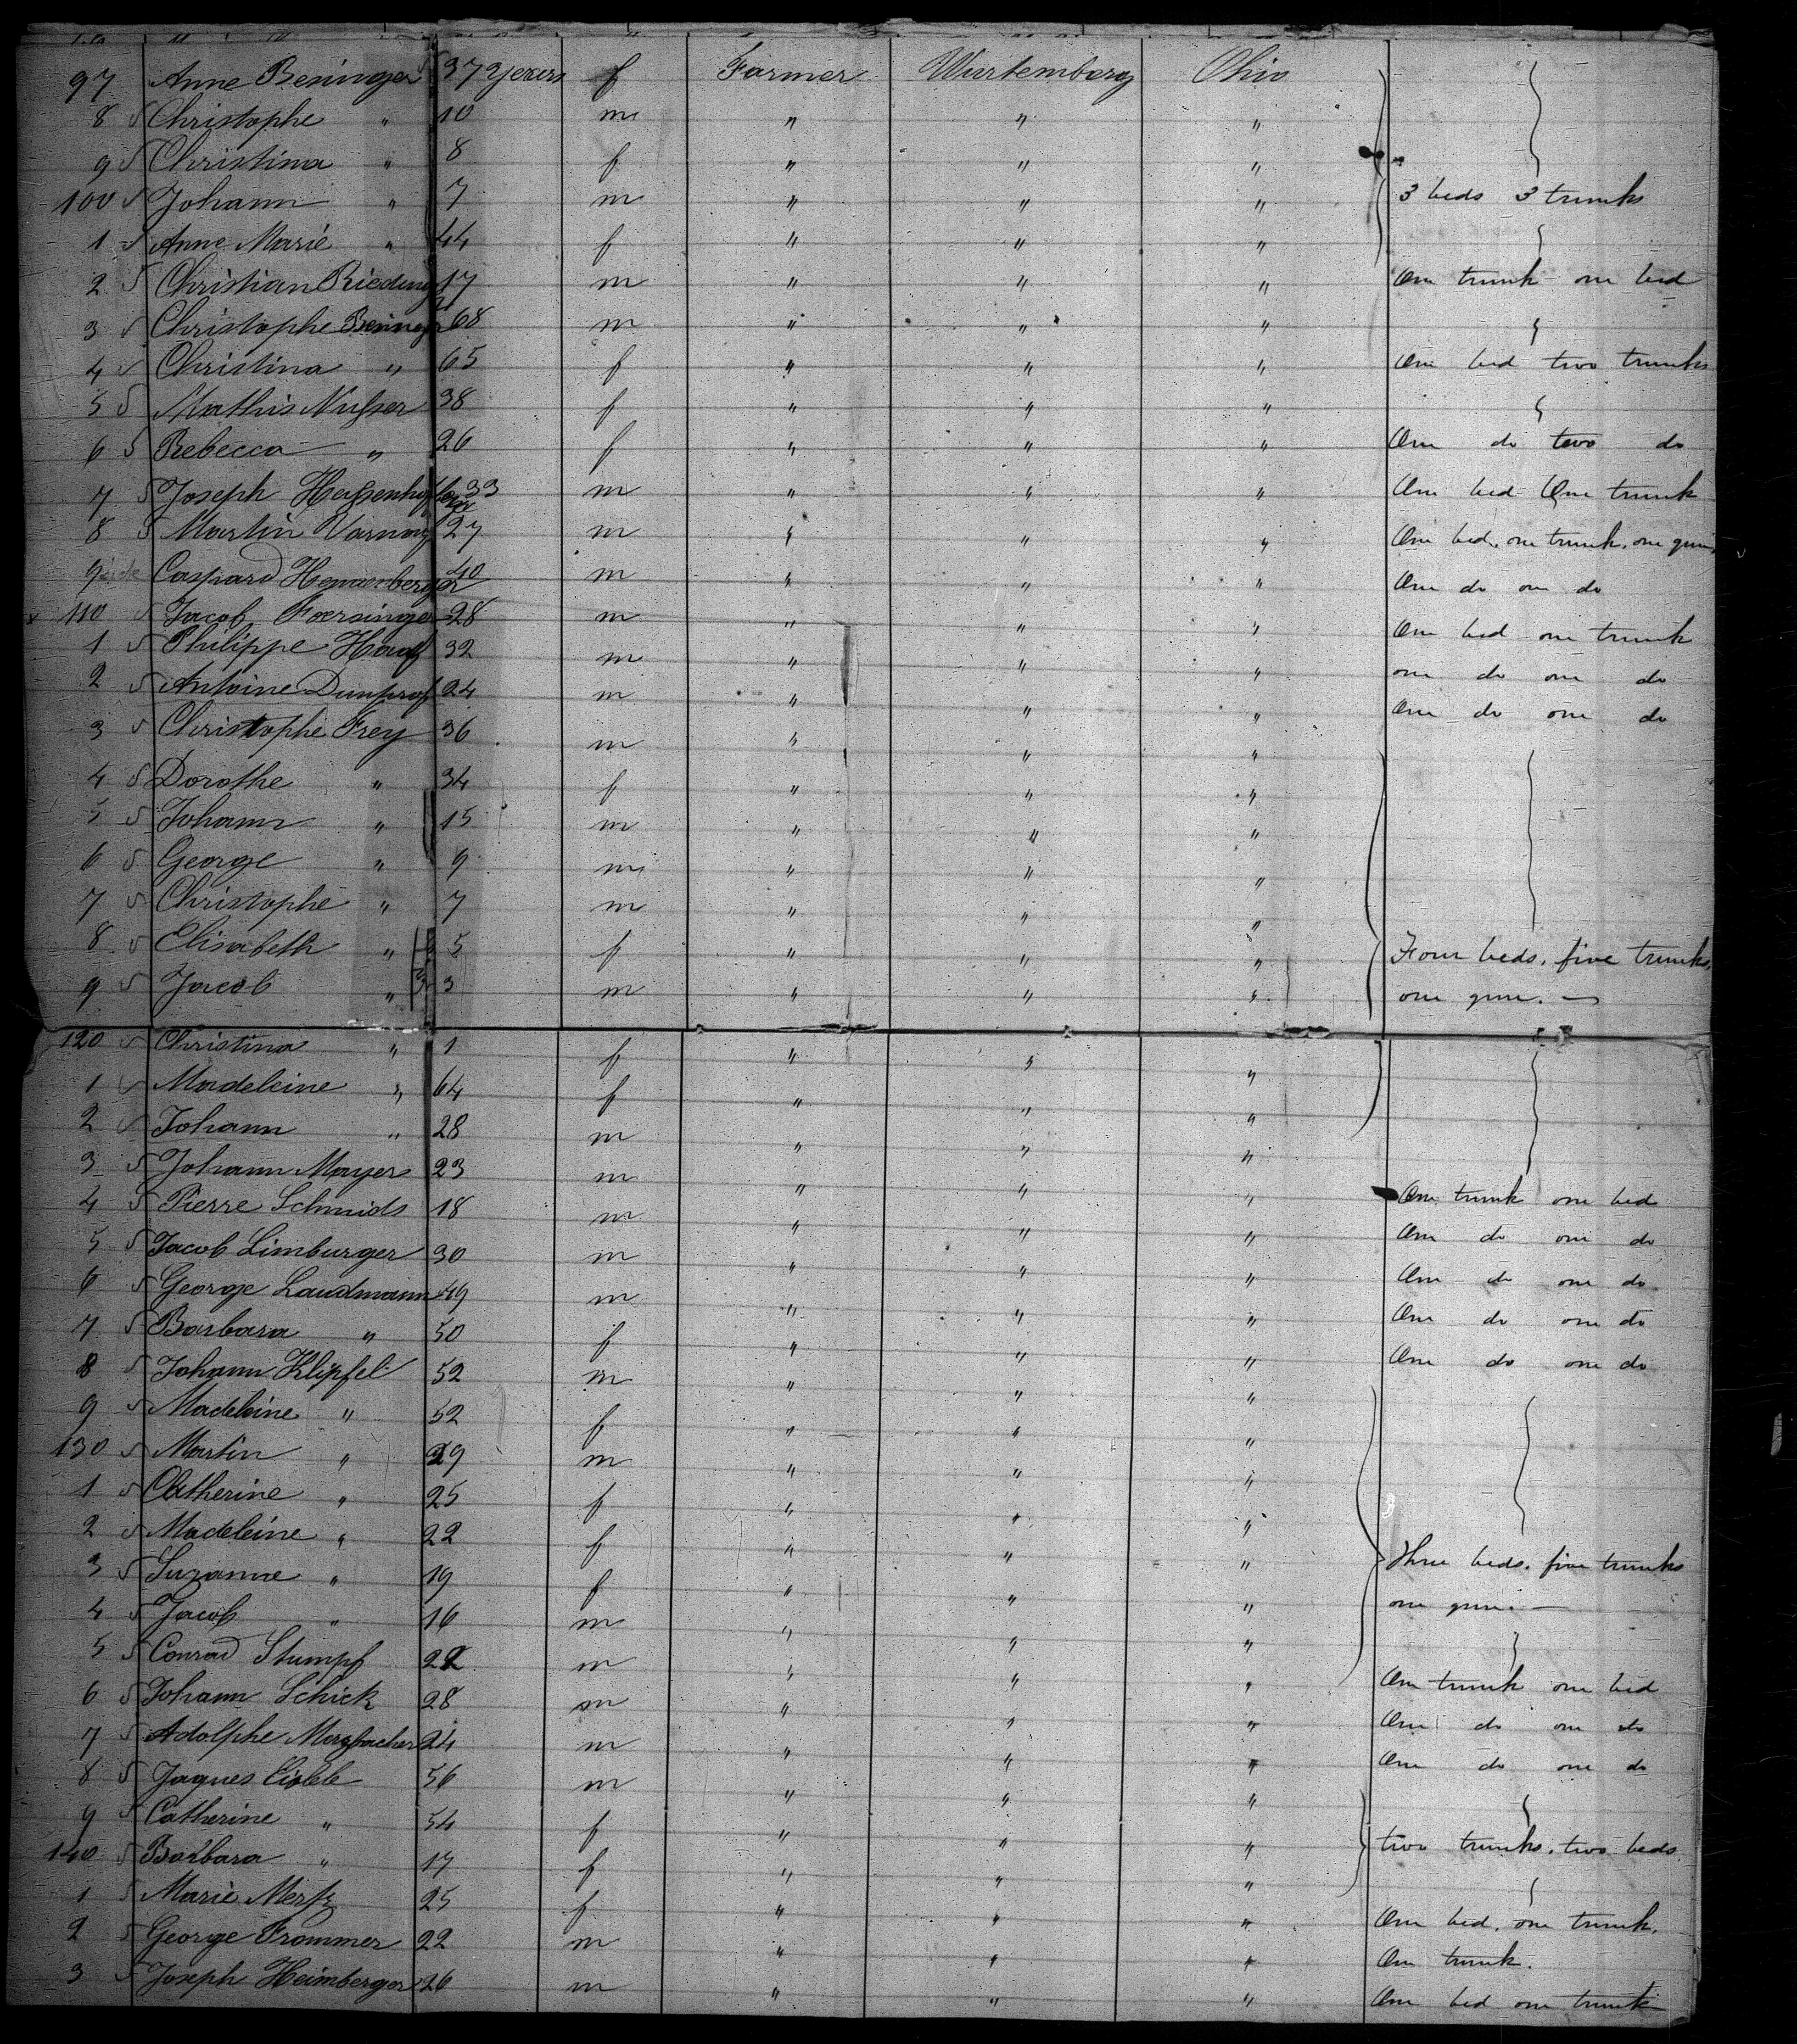 97 Anne Beninger 37 years f Farmer Wurtemberg Ohio
8 Christophe " 10 m " " "
9 Christina " 8 f " " "
100 Johann " 7 m " " " 3 beds 3 trunks
1 Anne Marie " 44 f " " "
2 Christian Rieding 17 m " " " One trunk one bed
3 Christophe Beninger 68 m " " "
4 Christina " 65 f " " " One bed two trunks
5 Mathis Nusser 38 f " " "
6 Rebecca " 26 f " " " One do two do
7 Joseph 33 m " " " One bed One trunk
8 Martin 27 m " " " One bed, one trunk, one gun
9 Caspard 40 m " " " One do one do
110 Jacob Foersinger 28 m " " " One bed one trunk
1 Philippe 32 m " " " one do one do
2 Antoine 24 m " " " One do one do
3 Christophe Frey 36 m " " "
4 Dorothe " 34 f " " "
5 Johann " 15 m " " "
6 George " 9 m " " "
7 Christophe " 7 m " " "
8 Elisabeth " 5 f " " " Four beds, five trunks,
9 Jacob " 3 m " " " one gun.
120 Christina " 1 f " " "
1 Madeleine " 64 f " " "
2 Johann " 28 m " " "
3 Johann Mayer 23 m " " " One trunk one bed
4 Pierre Schmids 18 m " " " One do one do
5 Jacob Limburger 30 m " " " One do one do
6 George Landmann 49 m " " " One do one do
7 Barbara " 50 f " " " One do one do
8 Johann Klipfel 52 m " " "
9 Madeleine " 52 f " " "
130 Martin " 29 m " " "
1 Catherine " 25 f " " "
2 Madeleine " 22 f " " "
3 Suzanne " 19 f " " " Three beds, five trunks
4 Jacob " 16 m " " " one gun.
5 Conrad Stumpf 22 m " " " One trunk one bed
6 Johann Schick 28 m " " " One do one do
7 Adolphe Merzbacher 24 m " " " One do one do
8 Jaques 56 m " " "
9 Catherine " 54 f " " " two trunks, two beds
140 Barbara " 17 f " " "
1 Marie Mertz 25 f " " " One bed, one trunk.
2 George Frommer 22 m " " " One trunk.
3 Joseph Heimberger 26 m " " " One bed one trunk